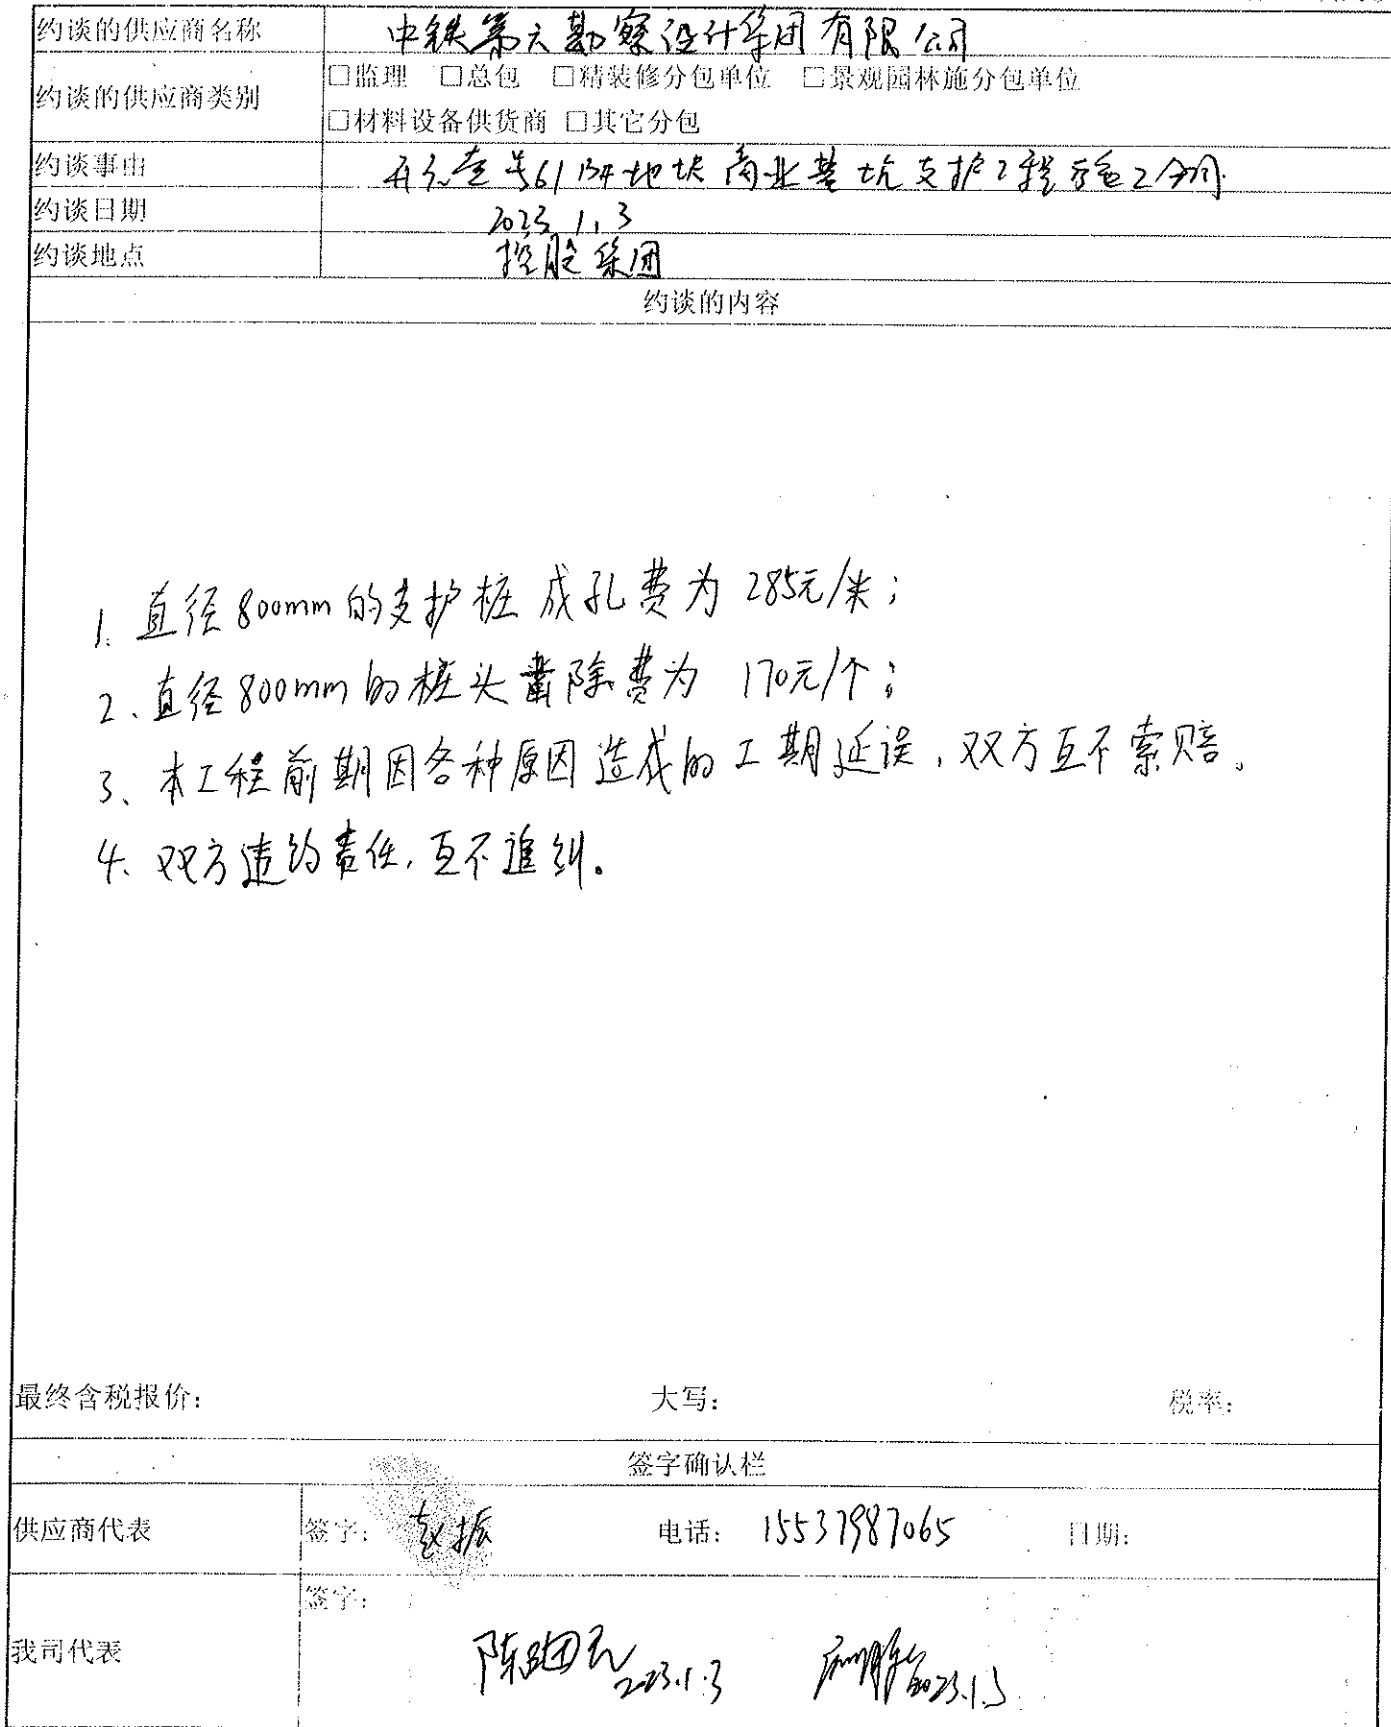 约谈的供应商名称 中铁第六勘察设计集团有限公司
约谈的供应商类别 □监理 □总包 □精装修分包单位 □景观园林施分包单位
□材料设备供货商 □其它分包
约谈事由 开元壹号61#地块商业基坑支护工程施工合同
约谈日期 2023.1.3
约谈地点 控股集团
约谈的内容
1. 直径800mm的支护桩成孔费为285元/米；
2、直径800mm的桩头凿除费为 170元/个；
3、本工程前期因各种原因造成的工期延误，双方互不索赔。
4、双方违约责任，互不追纠。
最终含税报价： 大写： 税率：
签字确认栏
供应商代表 签字： 赵振 电话： 15537987065 日期：
签字：
我司代表
2023.1.3 2023.1.3